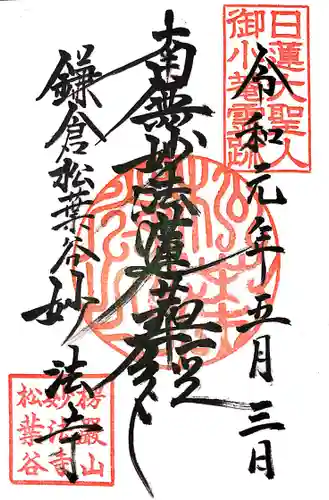 日蓮大聖人
御小菴霊跡
令和元年五月三日
南無妙法蓮華経
鎌倉松葉谷妙法寺
楞嚴山
妙法寺
松葉谷